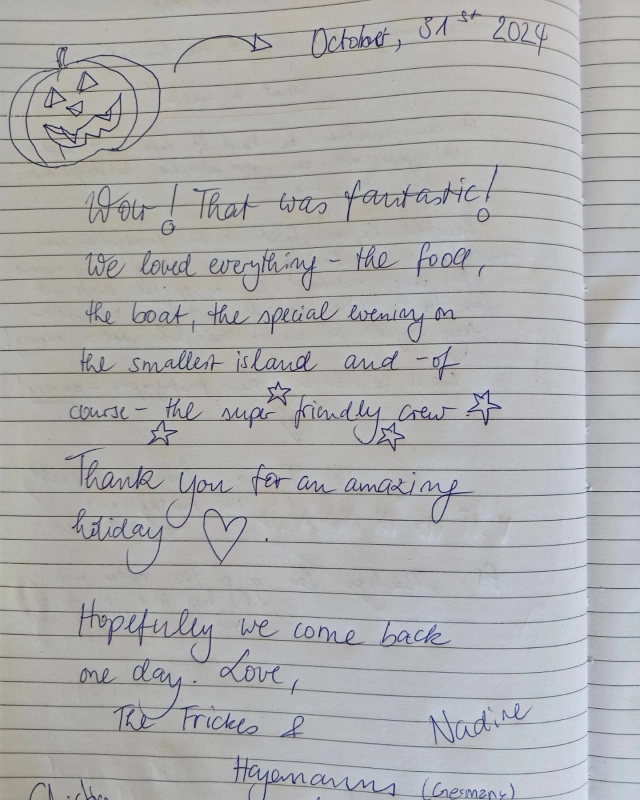 October, 31st 2024
Wow! That was fantastic!
We loved everything - the food,
the boat, the special evening on
the smallest island and - of
course - the super friendly crew
Thank you for an amazing
holiday ♡.
Hopefully we come back
one day. Love,
The Frickes &
Nadine
Hagemanns (Germany)